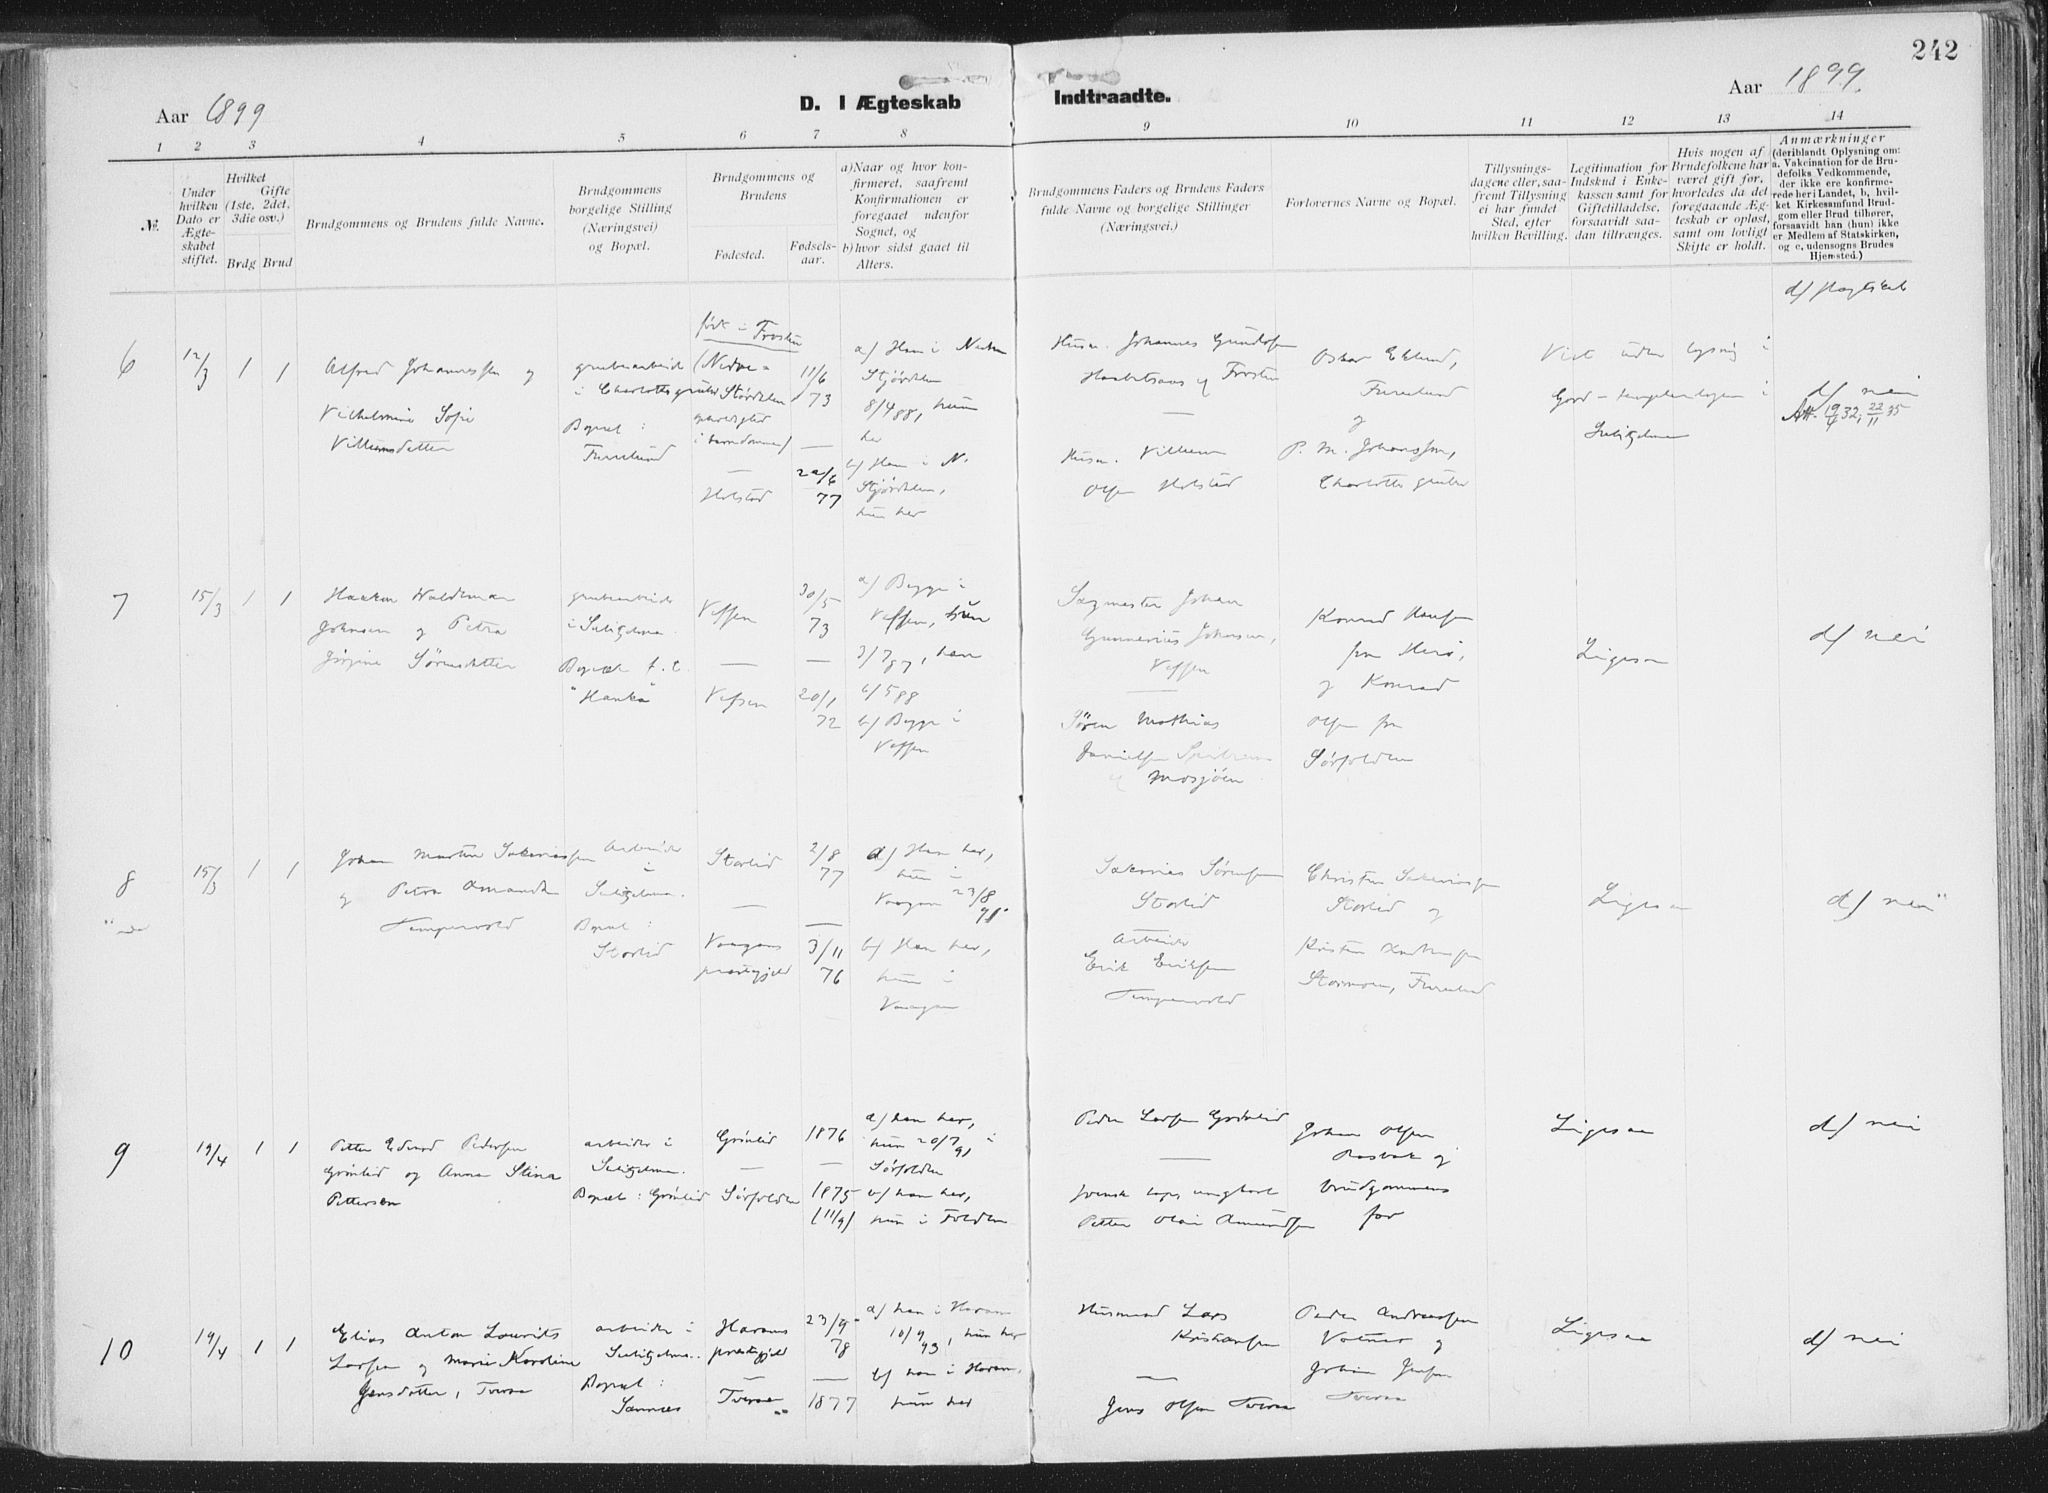 242
Aar 1899
D. I Ægteskab
Indtraadte.
Aar 1899.
1 2 3 4 5 6 7 8 9 10 11 12 13 14
№.
Under hvilken Dato er Ægteskabet stiftet.
Hvilket Gifte (1ste, 2det, 3die osv.)
Brdg Brud
Brudgommens og Brudens fulde Navne.
Brudgommens borgelige Stilling (Næringsvei) og Bopæl.
Brudgommens og Brudens
Fødested.
Fødselsaar.
a) Naar og hvor konfirmeret, saafremt Konfirmationen er foregaaet udenfor Sognet, og
b) hvor sidst gaaet til Alters.
Brudgommens Faders og Brudens Faders fulde Navne og borgelige Stillinger (Næringsvei.)
Forlovernes Navne og Bopæl.
Tillysningsdagene eller, saafremt Tillysning ei har fundet Sted, efter hvilken Bevilling.
Legitimation for Indskud i Enkekassen samt for Giftetilladelse, forsaavidt saadan tiltrænges.
Hvis nogen af Brudefolkene har været gift før, hvorledes da det foregaaende Ægteskab er opløst, samt om lovligt Skifte er holdt.
Anmærkninger (deriblandt Oplysning om: a. Vakcination for de Brudefolks Vedkommende, der ikke ere konfirmerede her i Landet, b, hvilket Kirkesamfund Brudgom eller Brud tilhører, forsaavidt han (hun) ikke er Medlem af Statskirken, og c, udensogns Brudes Hjemsted.)
6
12/3
1
1
Alfred Johannessen og
Vilhelmine Sofie
Villumsdatter
grubearbeide
i Charlotta gruber
Bopæl:
Furulund
født i Frosten
(Nedre
Størdalen
i barndommen)
—
Holstad
11/6
73
—
22/6
77
a) Han i Nedre
Stjørdalen
8/4 88, hun
her
b) Han i N.
Stjørdalen,
hun her
Husm. Johannes Gundersen
Frosten
—
Husm. Villum
Olsen Holstad
Oskar Eklund,
Furulund
og
P. M. Johansson,
Charlotta gruber
Viet uden lysning i
Good-templarlogen i
Sulitjelma
d) nei
Att. 19/4 32, 22/11 35
7
15/3
1
1
Haakon Waldemar
Johnsen og Petra
Jørgine Sørensdatter
grubearbeider
i Sulitjelma.
Bopæl
"Hanka"
Vefsen
—
Vefsen
30/5
73
—
20/1
72
a) Begge i
Vefsen, hun
3/7 87, han
6/5 88
b) Begge i
Vefsen
Sagmester Johan
Gunnerius Johnsen,
Vefsen
—
Søren Mathias
Danielsen
Mosjøen
Konrad Hansen
fra Herø,
og Konrad
Olsen fra
Sørfolden
Ligesaa
d) nei
8
15/3
1
1
Johan Martin Sakariassen
og Petra Amanda
Tempervold
Arbeider
i
Sulitjelma.
Bopæl:
Storlid
Storlid
—
Vaagans
præstegjeld
2/8
77
—
3/11
76
a) Han her,
hun i
Vaagan 23/8
91.
b) Han her,
hun i
Vaagan
Sakarias Sørensen
Storlid
Arbeider
Erik Eriksen
Tempervold
Christian Sakariassen
Storlid og
Kristen Knudsen
Stormoen, Furulund
Ligesaa
d) nei
9
19/4
1
1
Petter Edvard Pedersen
Grønlid og Anna Stina
Pettersen
arbeider i
Sulitjelma.
Bopæl: Grønlid
Grønlid
—
Sørfolden
1876
—
1875
(11/9)
a) han her,
hun 20/7 91 i
Sørfolden
b) han her,
hun i Folden
Peder Larsen Grønlid
—
svensk lap, ungkarl
Petter Olai Amundsen
Johan Olsen
og
brudgommens
far
Ligesaa
d) nei
10
19/4
1
1
Elias Anton Laurits
Larsen og Marie Karoline
Jensdatter, Tveraa
arbeider i
Sulitjelma.
Bopæl:
Sannæs
Harams
præstegjeld
—
Tveraa
23/9
78
—
1877
a) han i Haram
10/9 93, hun her
b) han i Haram,
hun her
Husmand Lars
Kristiansen
—
Jens Olsen Tveraa
Peder Andreassen
og
Johan Jensen
Tveraa
Ligesaa
d) nei